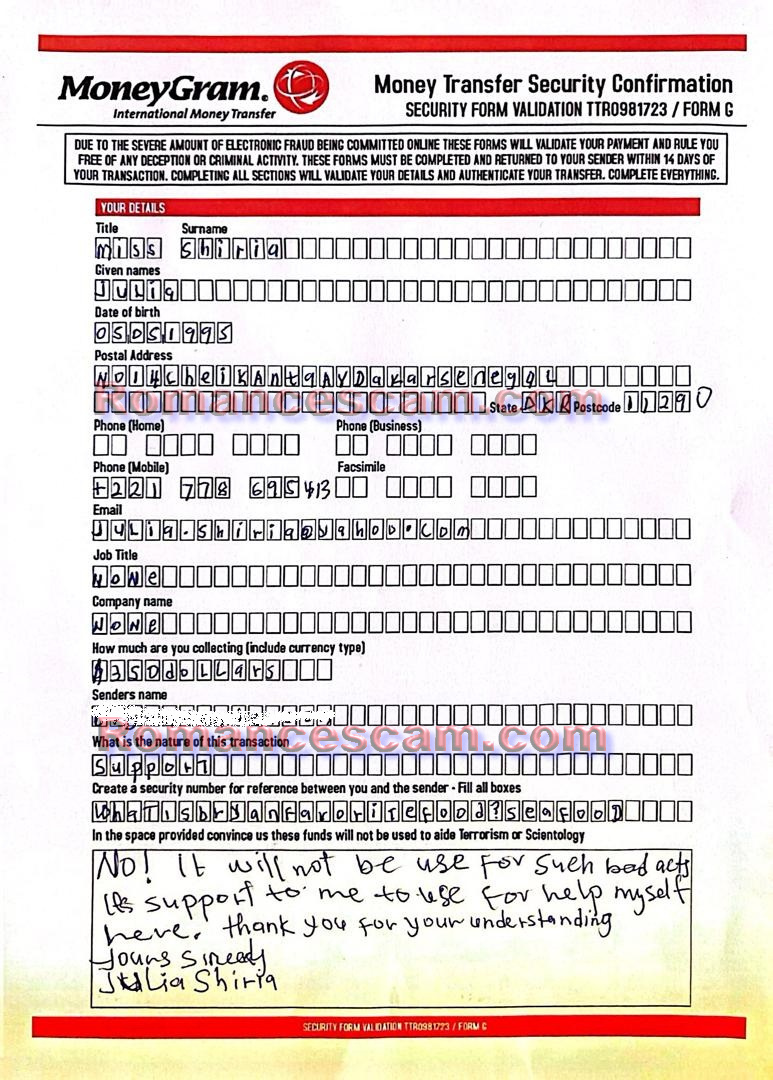 MoneyGram.
International Money Transfer
Money Transfer Security Confirmation
SECURITY FORM VALIDATION TTR0981723 / FORM G
DUE TO THE SEVERE AMOUNT OF ELECTRONIC FRAUD BEING COMMITTED ONLINE THESE FORMS WILL VALIDATE YOUR PAYMENT AND RULE YOU
FREE OF ANY DECEPTION OR CRIMINAL ACTIVITY. THESE FORMS MUST BE COMPLETED AND RETURNED TO YOUR SENDER WITHIN 14 DAYS OF
YOUR TRANSACTION. COMPLETING ALL SECTIONS WILL VALIDATE YOUR DETAILS AND AUTHENTICATE YOUR TRANSFER. COMPLETE EVERYTHING.
YOUR DETAILS
Title Surname
Miss Shiria
Given names
Julia
Date of birth
05051995
Postal Address
NO14CheikAntaAVDakarsenegaL
Romancescam.com
State DKR Postcode 11290
Phone (Home) Phone (Business)
Phone (Mobile) Facsimile
+221 778 695413
Email
Julia.shiria@yahoo.com
Job Title
NoNe
Company name
NoNe
How much are you collecting (include currency type)
$350doLLars
Senders name
Romancescam.com
What is the nature of this transaction
SupporT
Create a security number for reference between you and the sender - Fill all boxes
WhaTisbryanfavoriTefood?seafooD
In the space provided convince us these funds will not be used to aide Terrorism or Scientology
NO! It will not be use for such bad acts
Its support to me to use for help myself
here. thank you for your understanding
yours sincedy
JuLia Shiria
SECURITY FORM VALIDATION TTR0981723 / FORM G